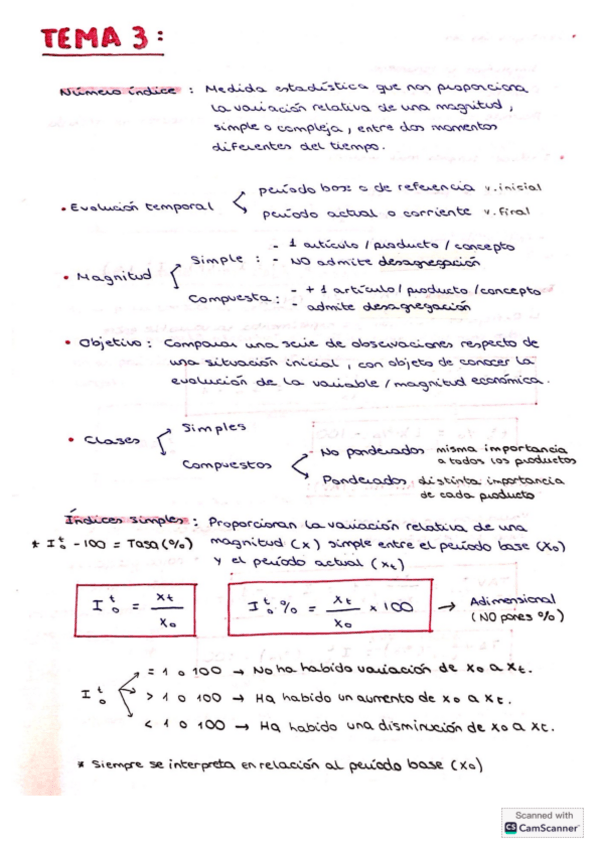 TEMA 3:
Número índice : Medida estadística que nos proporciona
la variación relativa de una magnitud,
simple o compleja, entre dos momentos
diferentes del tiempo.
• Evolución temporal
período base o de referencia v. inicial
período actual o corriente v. final
• Magnitud
Simple : - 1 artículo / producto / concepto
- NO admite desagregación
Compuesta : - + 1 artículo / producto / concepto
- admite desagregación
• Objetivo : Comparar una serie de observaciones respecto de
una situación inicial, con objeto de conocer la
evolución de la variable / magnitud económica.
• Clases
Simples
Compuestos
No ponderados misma importancia
a todos los productos
Ponderados distinta importancia
de cada producto
Índices simples : Proporcionan la variación relativa de una
* I₀ᵗ - 100 = Tasa (%) magnitud (x) simple entre el período base (x₀)
y el período actual (xₜ)
I₀ᵗ = xₜ / x₀
I₀ᵗ % = xₜ / x₀ × 100 → Adimensional
(NO pones %)
I₀ᵗ
= 1 o 100 → No ha habido variación de x₀ a xₜ.
> 1 o 100 → Ha habido un aumento de x₀ a xₜ.
< 1 o 100 → Ha habido una disminución de x₀ a xₜ.
* Siempre se interpreta en relación al período base (x₀)
Scanned with
CS CamScanner